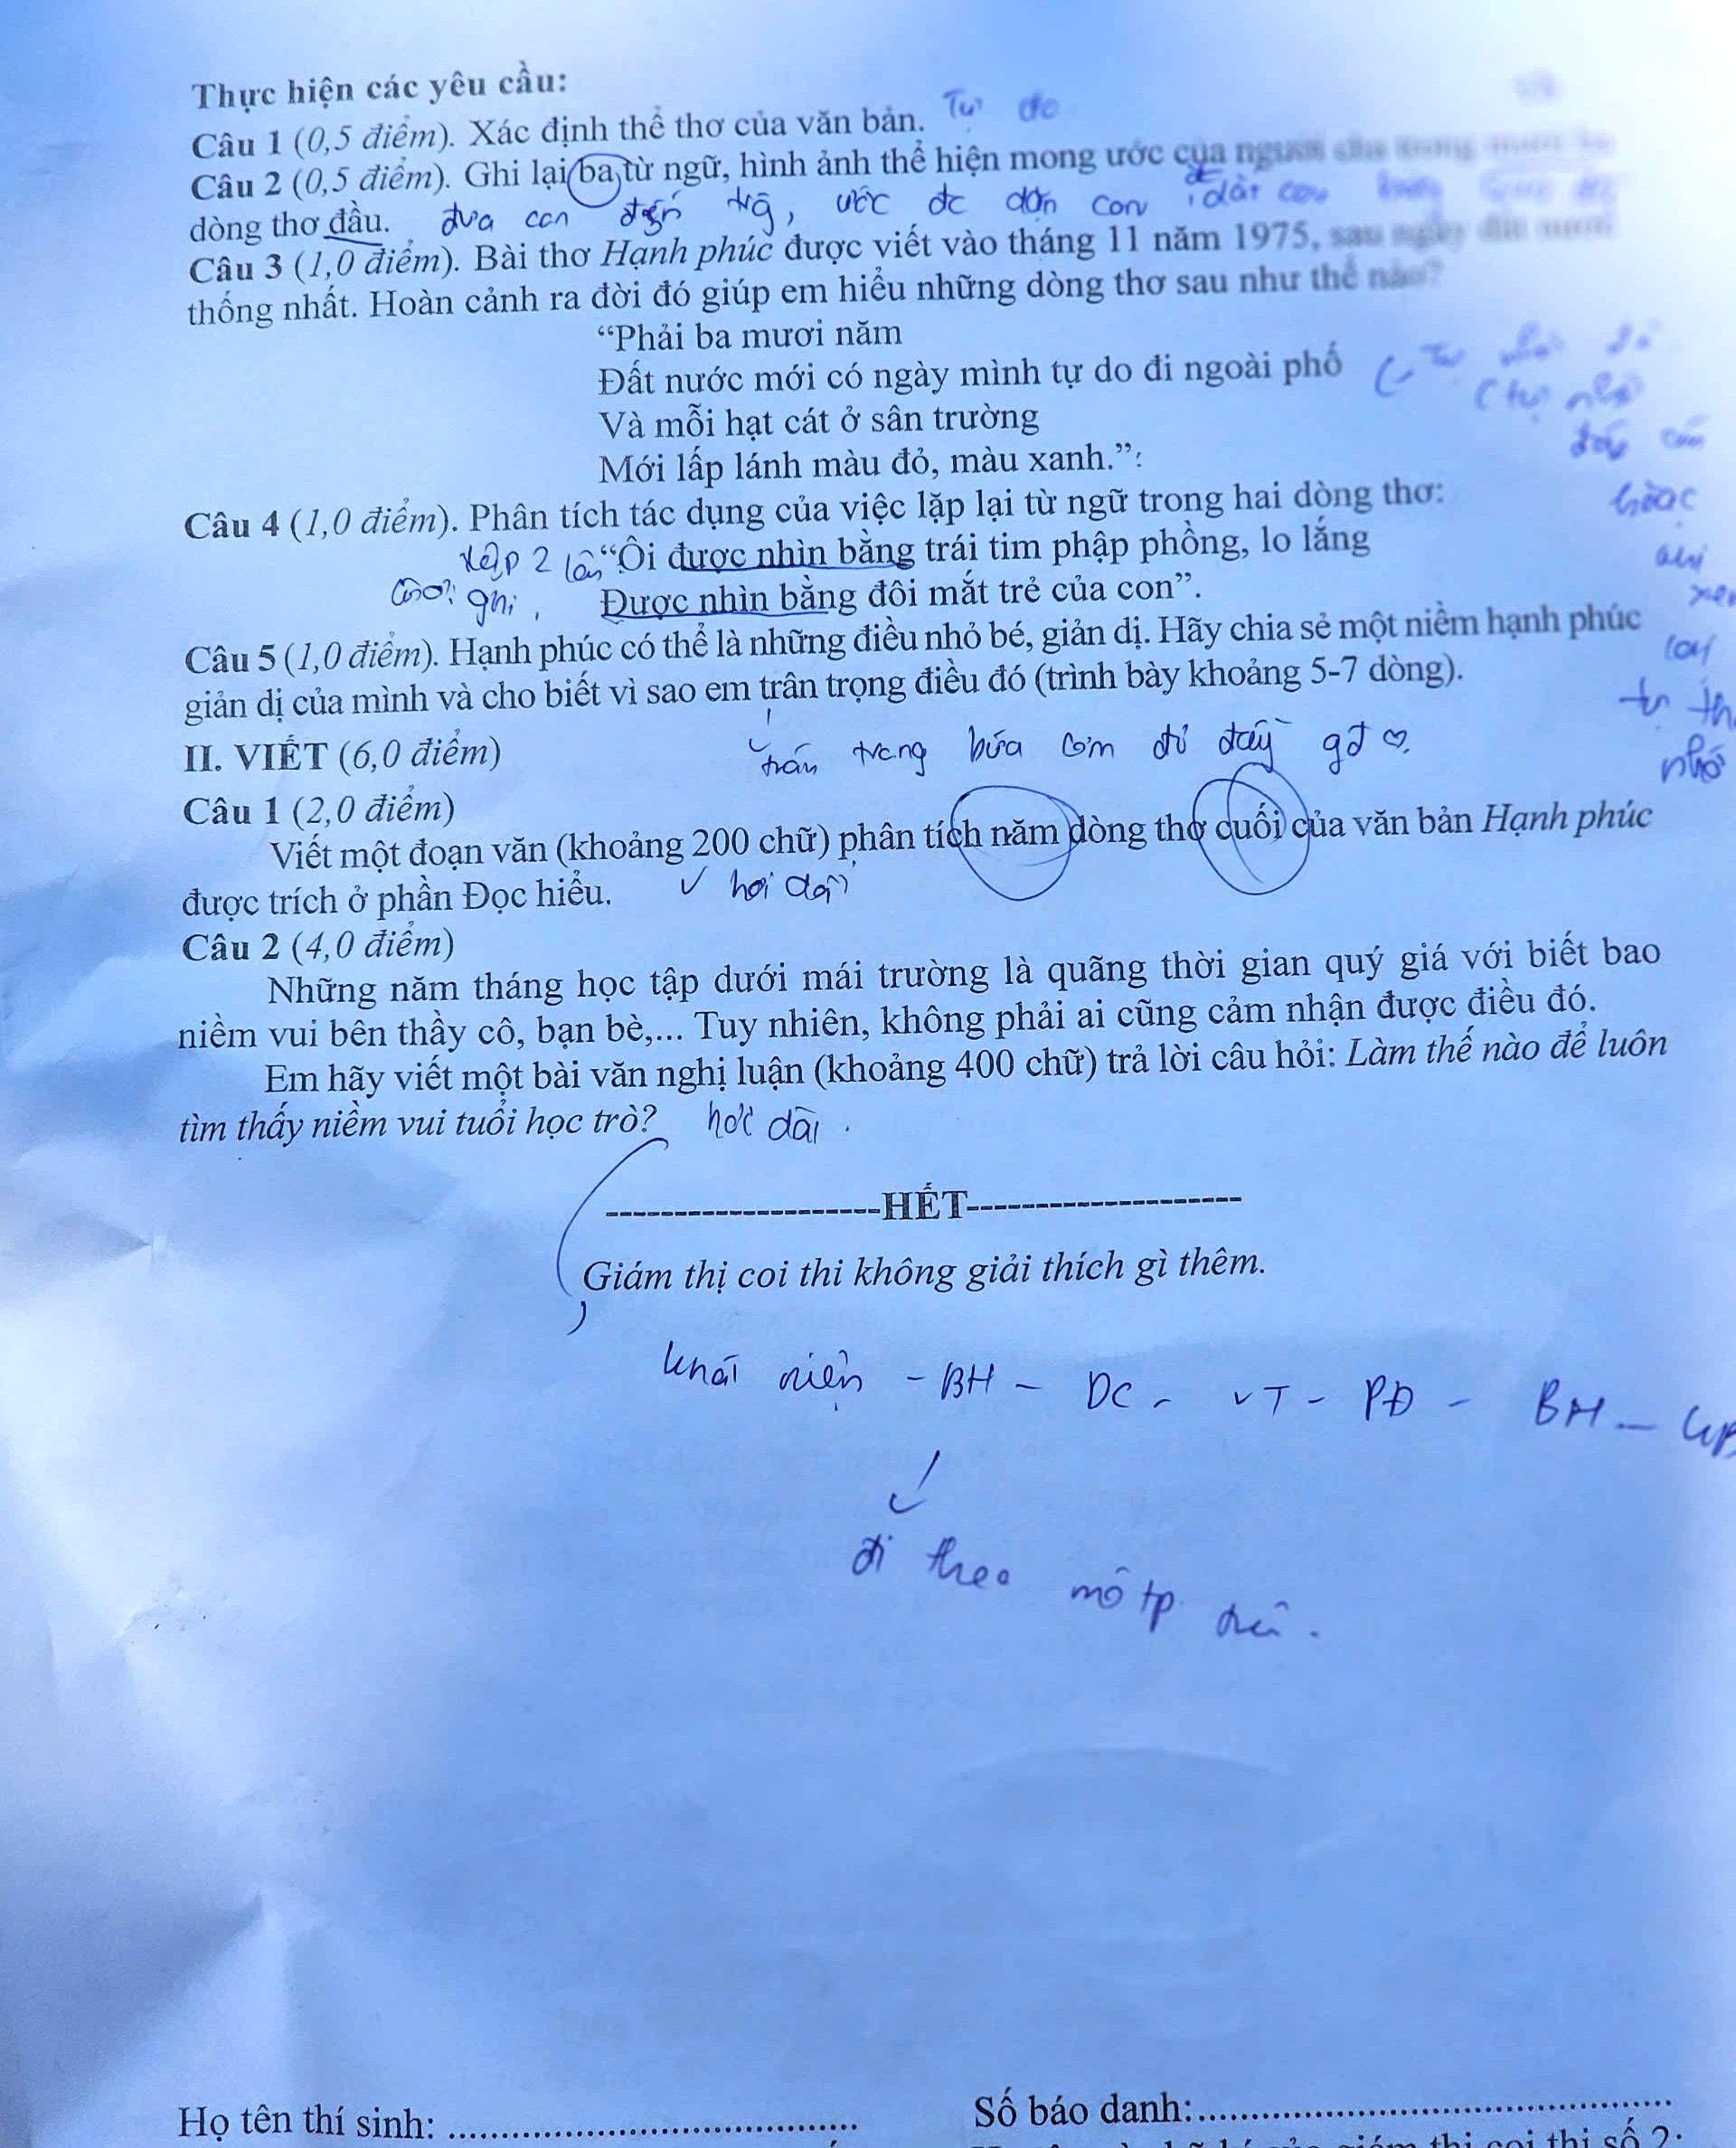 Thực hiện các yêu cầu:
Câu 1 (0,5 điểm). Xác định thể thơ của văn bản. Tự do
Câu 2 (0,5 điểm). Ghi lại ba từ ngữ, hình ảnh thể hiện mong ước của người cha trong
dòng thơ đầu. đưa con đến trg, ước đc đón con, dắt con
Câu 3 (1,0 điểm). Bài thơ Hạnh phúc được viết vào tháng 11 năm 1975, sau ngày đất nước
thống nhất. Hoàn cảnh ra đời đó giúp em hiểu những dòng thơ sau như thế nào?
“Phải ba mươi năm
Đất nước mới có ngày mình tự do đi ngoài phố
Và mỗi hạt cát ở sân trường
Mới lấp lánh màu đỏ, màu xanh.”.
Câu 4 (1,0 điểm). Phân tích tác dụng của việc lặp lại từ ngữ trong hai dòng thơ:
lặp 2 lần “Ôi được nhìn bằng trái tim phập phồng, lo lắng
ghi, Được nhìn bằng đôi mắt trẻ của con”.
Câu 5 (1,0 điểm). Hạnh phúc có thể là những điều nhỏ bé, giản dị. Hãy chia sẻ một niềm hạnh phúc
giản dị của mình và cho biết vì sao em trân trọng điều đó (trình bày khoảng 5-7 dòng).
II. VIẾT (6,0 điểm)
bữa cơm đủ đầy gđ ♡.
Câu 1 (2,0 điểm)
Viết một đoạn văn (khoảng 200 chữ) phân tích năm dòng thơ cuối của văn bản Hạnh phúc
được trích ở phần Đọc hiểu. hơi dài
Câu 2 (4,0 điểm)
Những năm tháng học tập dưới mái trường là quãng thời gian quý giá với biết bao
niềm vui bên thầy cô, bạn bè,... Tuy nhiên, không phải ai cũng cảm nhận được điều đó.
Em hãy viết một bài văn nghị luận (khoảng 400 chữ) trả lời câu hỏi: Làm thế nào để luôn
tìm thấy niềm vui tuổi học trò? hơi dài.
--------------------HẾT--------------------
Giám thị coi thi không giải thích gì thêm.
khái niệm - BH - DC - VT - PĐ - BH -
đi theo
Họ tên thí sinh: ........................................
Số báo danh:..............................................